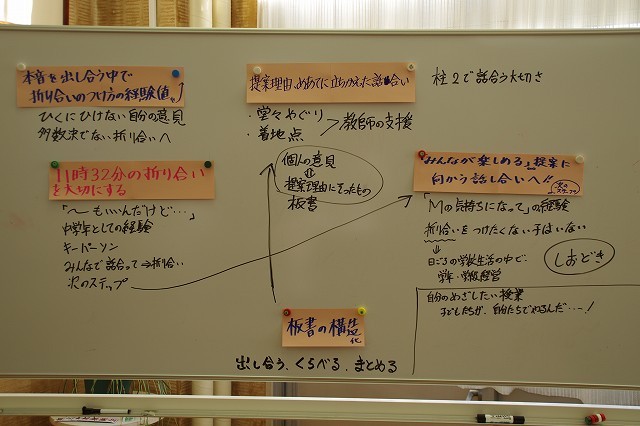 本音を出し合う中で
折り合いのつけ方の経験値
ひくにひけない自分の意見
多数決でない折り合いへ
11時32分の折り合い
を大切にする
「～もいいんだけど…」
中学年としての経験
キーパーソン
みんなで話合って⇒折り合い
次のステップ
提案理由、めあてに立ちかえった話し合い
・堂々めぐり
・着地点
教師の支援
個人の意見
提案理由にそったもの
板書
板書の構造
化
出し合う、くらべる、まとめる
柱2で話合う大切さ
みんなが楽しめる提案に
向かう話し合いへ!!
「Mの気持ちになって」の経験
折り合いをつけたくない子はいない
日ごろの学校生活の中で
学年・学級経営
しおどき
自分のめざしたい授業
子どもたちが、自分たちで